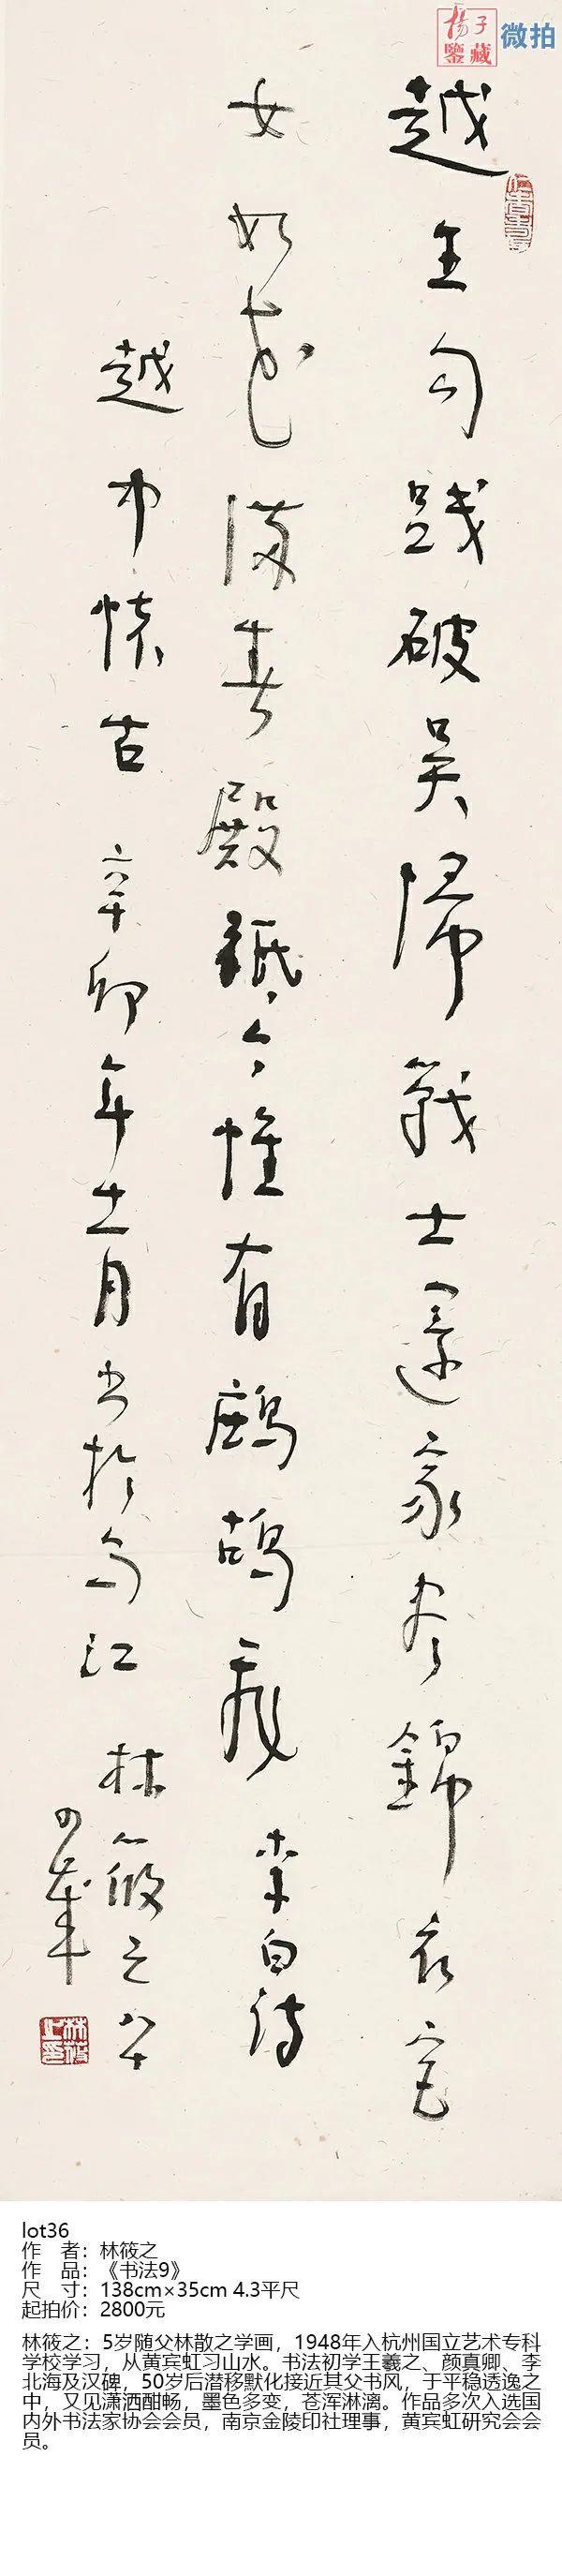 楊子
鑒藏
微拍
越王勾踐破吴歸戰士還家盡錦衣宫
女如花滿春殿祗今惟有鷓鴣飛 李白詩
越中懷古 辛卯年十一月書於烏江 林筱之八十
四歲
林筱之印
lot36
作 者：林筱之
作 品：《书法9》
尺 寸：138cm×35cm 4.3平尺
起拍价：2800元
林筱之：5岁随父林散之学画，1948年入杭州国立艺术专科
学校学习，从黄宾虹习山水。书法初学王羲之、颜真卿、李
北海及汉碑，50岁后潜移默化接近其父书风，于平稳透逸之
中，又见潇洒酣畅，墨色多变，苍浑淋漓。作品多次入选国
内外书法家协会会员，南京金陵印社理事，黄宾虹研究会会
员。